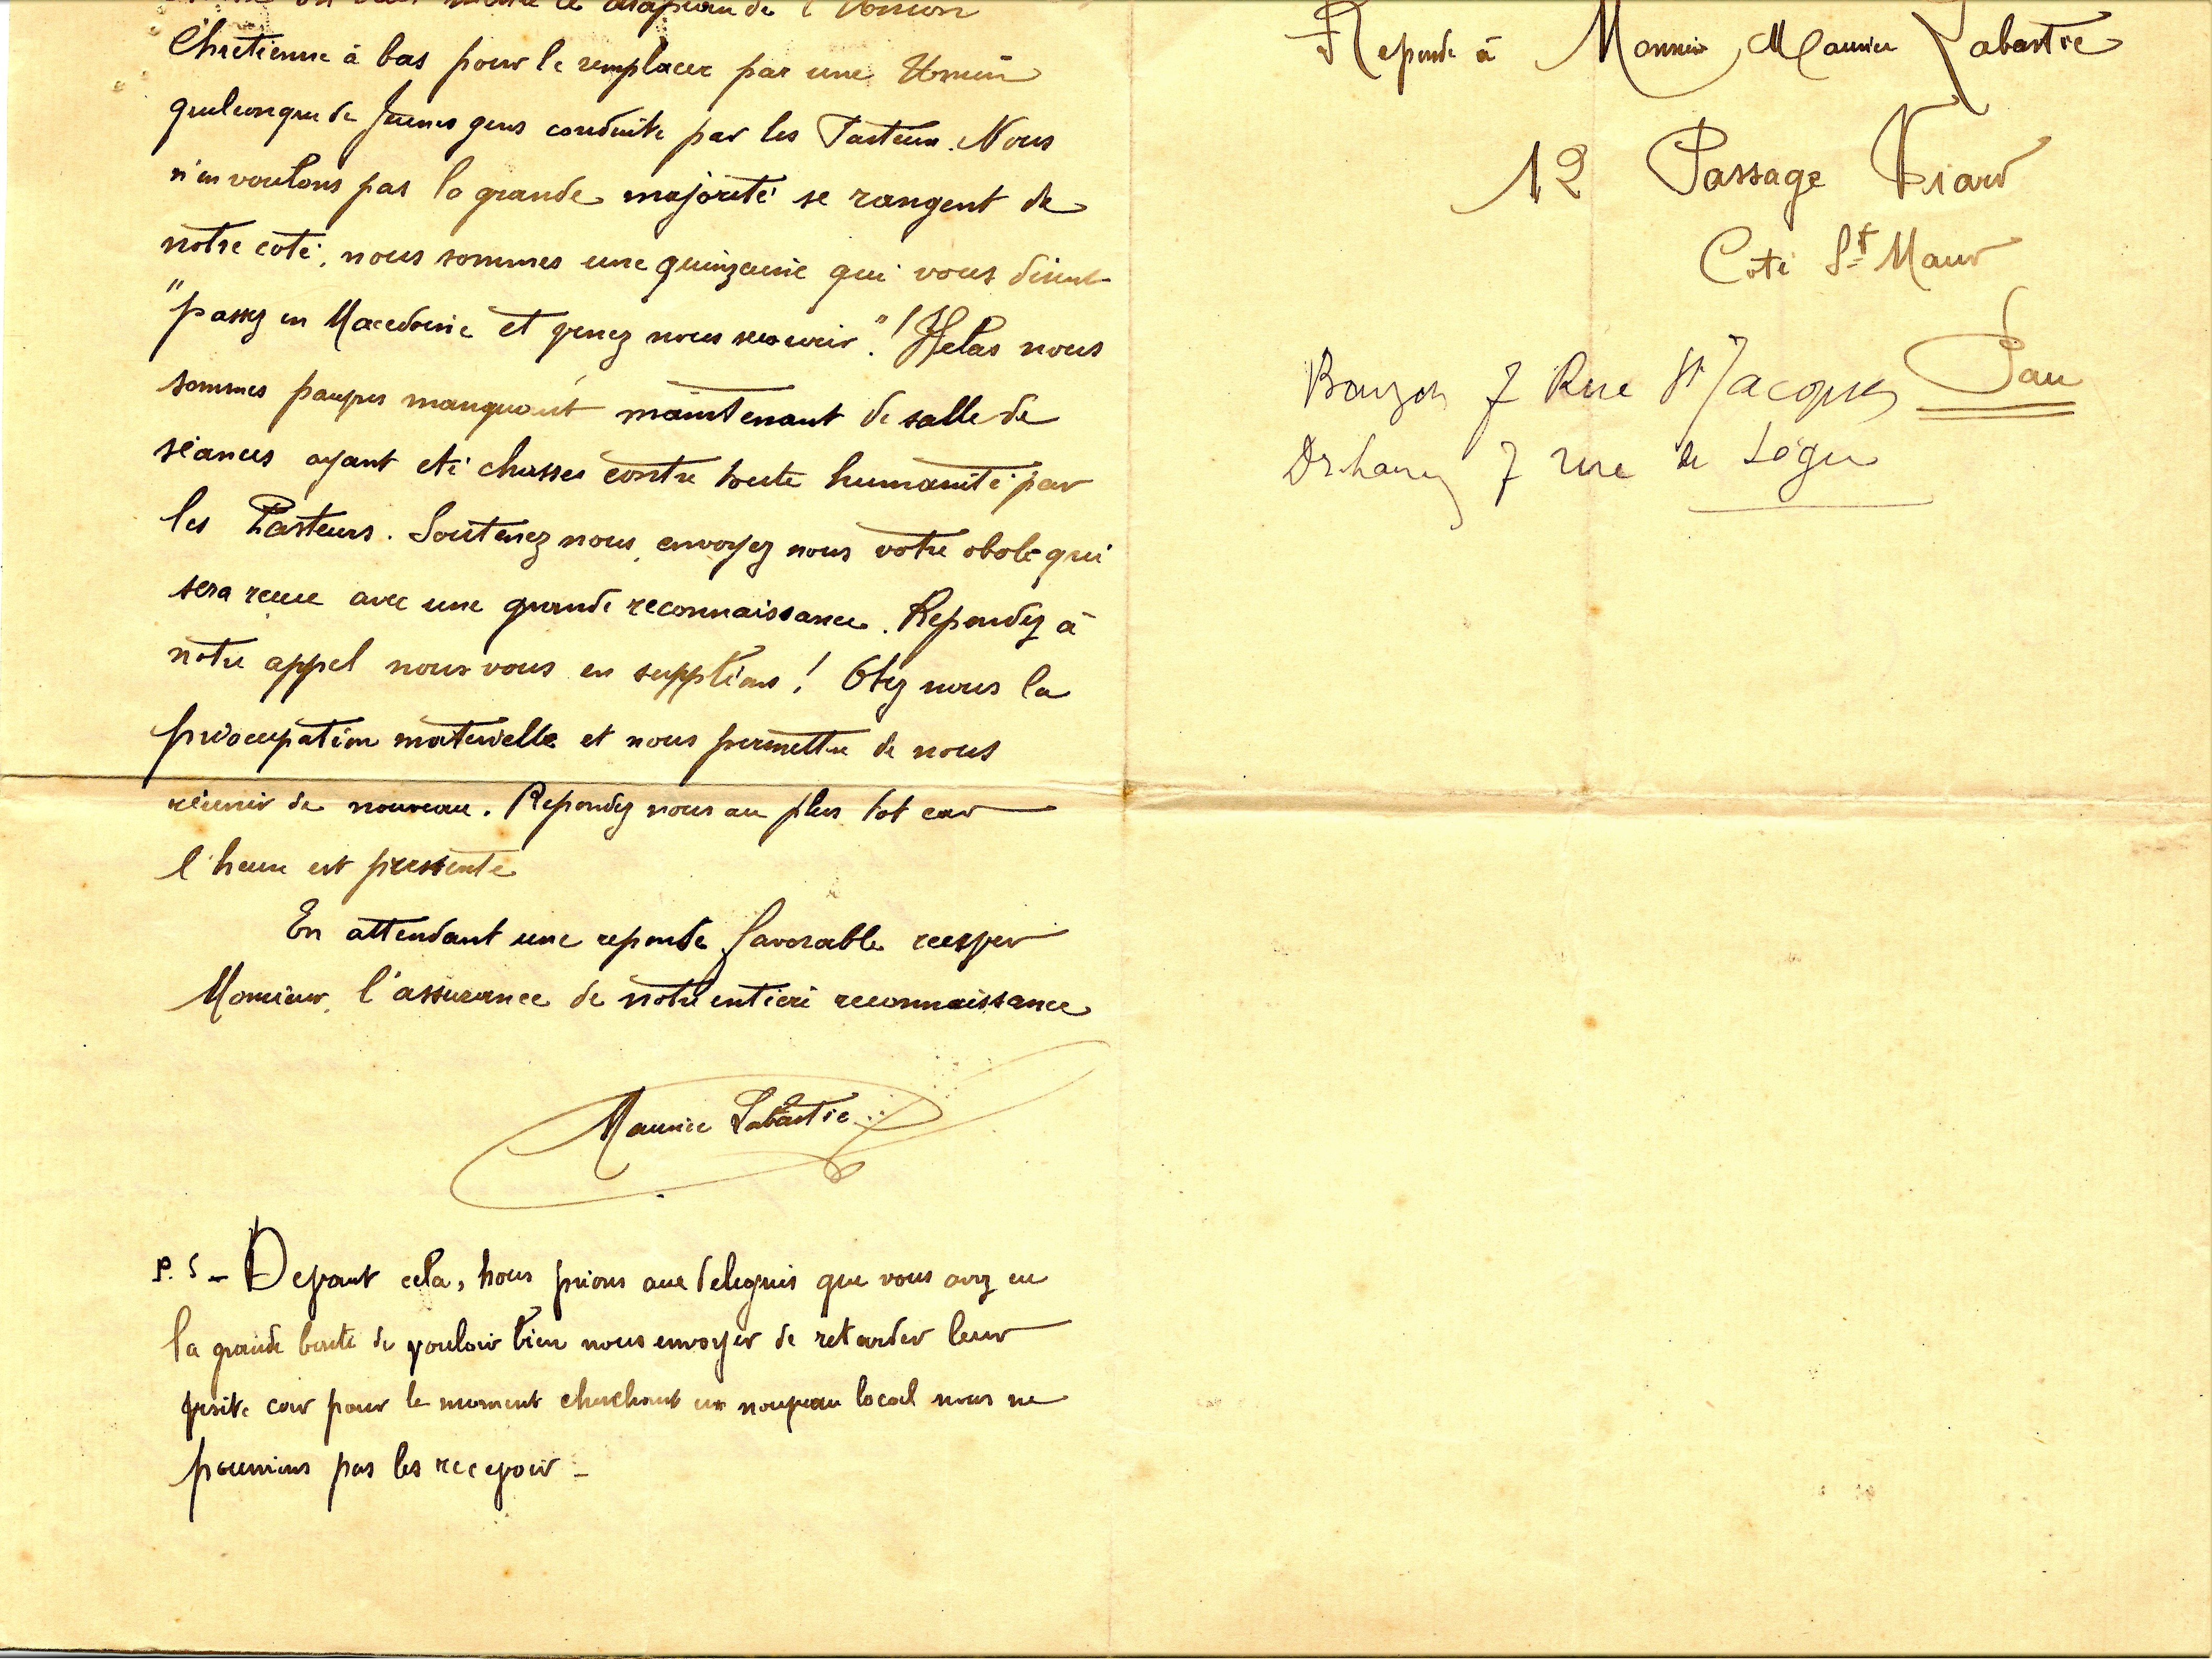 on veut mettre le drapeau de l'Union
Chretienne à bas pour le remplacer par une Union
quelconque de Jeunes gens conduite par les Pasteurs. Nous
n'en voulons pas la grande majorité se rangent de
notre coté, nous sommes une quinzaine qui vous disent
"passez en Macedoine et venez nous secourir"! Helas nous
sommes pauvres manquant maintenant de salle de
séances ayant été chasses contre toute humanité par
les Pasteurs. Soutenez nous, envoyez nous votre obole qui
sera recue avec une grande reconnaissance. Repondez à
notre appel nous vous en supplions! Otez nous la
préoccupation materielle et nous permettre de nous
réunir de nouveau. Repondez nous au plus tot car
l'heure est pressente
En attendant une reponse favorable recever
Monsieur, l'assurance de notre entière reconnaissance
Maurice Labastie
P. S - Devant cela, nous prions aux delegués que vous avez eu
la grande bonté de vouloir bien nous envoyer de retarder leur
visite car pour le moment cherchant un nouveau local nous ne
pourrions pas les recevoir -
Reponse à Monsieur Maurice Labastie
12 Passage Viard
Coté St Maur
Pau
Bauzon 7 Rue St Jacques
7 rue de Ségure